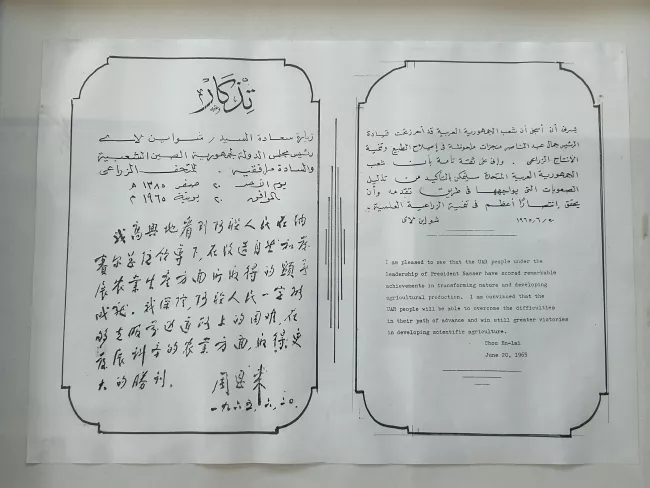 تذكار
زيارة سعادة السيد / شواين لاى
رئيس مجلس الدولة لجمهورية الصين الشعبية
والسادة مرافقيه . للمتحف الزراعى
يوم الأحد ٢٠ صفر ١٣٨٥ هـ
الموافق ٢٠ يونية ١٩٦٥ م
我高興地看到阿联人民在纳
赛尔总统领导下,在改造自然和发
展农业生产方面所取得的顕著
成就。我深信阿联人民一定能
够克服前进道路上的困难,在
发展科学的农业方面取得更
大的勝利。
周恩来
一九六五.六.二〇.
يسرنى أن أسجل أن شعب الجمهورية العربية قد أحرز تحت قيادة
الرئيس جمال عبد الناصر منجزات ملحوظة فى إصلاح الطبيع وتنمية
الأنتاج الزراعى . وإنى على ثقة تامة بأن شعب
الجمهورية العربية المتحدة سيتمكن بالتأكيد من تذليل
الصعوبات التى يواجهها فى طريق تقدمه وأن
يحقق إنتصارًا أعظم فى تنمية الزراعية العلمية .
شواين لاى ١٩٦٥/٦/٢٠
I am pleased to see that the UAR people under the
leadership of President Nasser have scored remarkable
achievements in transforming nature and developing
agricultural production. I am convinced that the
UAR people will be able to overcome the difficulties
in their path of advance and win still greater victories
in developing scientific agriculture.
Chou En-lai
June 20, 1965